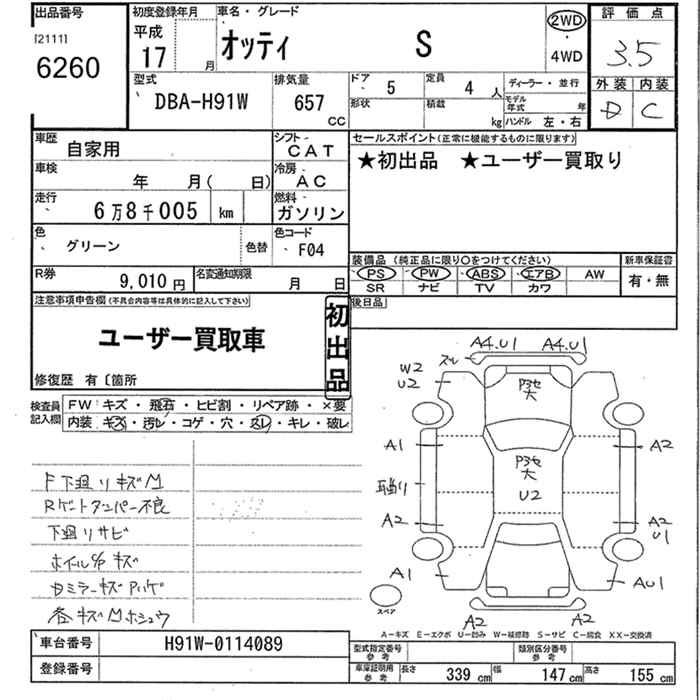 出品番号 初度登録年月 車名・グレード 評価点
[2111] 平成 オッティ S 2WD 3.5
6260 17 月 4WD 外装 内装
型式 排気量 ドア 5 定員 4 人 ディーラー・並行 D C
DBA-H91W 657 CC 形状 積載 kg モデル年式 年
ハンドル 左・右
車歴 自家用 シフト CAT セールスポイント(正常に機能するものに限ります)
車検 年 月( 日) 冷房 AC ★初出品 ★ユーザー買取り
走行 6万8千005 km 燃料 ガソリン
色 グリーン 色替 色コード F04
装備品 (純正品に限り○をつけてください) 新車保証書
R券 9,010円 名変通知期限 月 日 PS PW ABS エアB AW 有・無
SR ナビ TV カワ
注意事項申告欄(不具合内容等は具体的に記入して下さい) 後日品
ユーザー買取車 初出品
修復歴 有〔箇所
検査員記入欄 FW キズ・飛石・ヒビ割・リペア跡・×要
内装 キズ・汚レ・コゲ・穴・スレ・キレ・破レ
F下廻りキズM
Rゲートダンパー不良
下廻りサビ
ホイルC/Pキズ
各キズMホシュウ
A4.U1 A4.U1
スレ
W2
U2
A1 A2
U2
A2 A2
U1
A1 AU1
スペア
A2 A2
A-キズ E-エクボ U-凹み W-補修跡 S-サビ C-腐食 XX-交換済
車台番号 H91W-0114089 型式指定番号 参考 類別区分番号 参考
登録番号 車庫証明用 参考 長さ 339 cm 幅 147 cm 高さ 155 cm